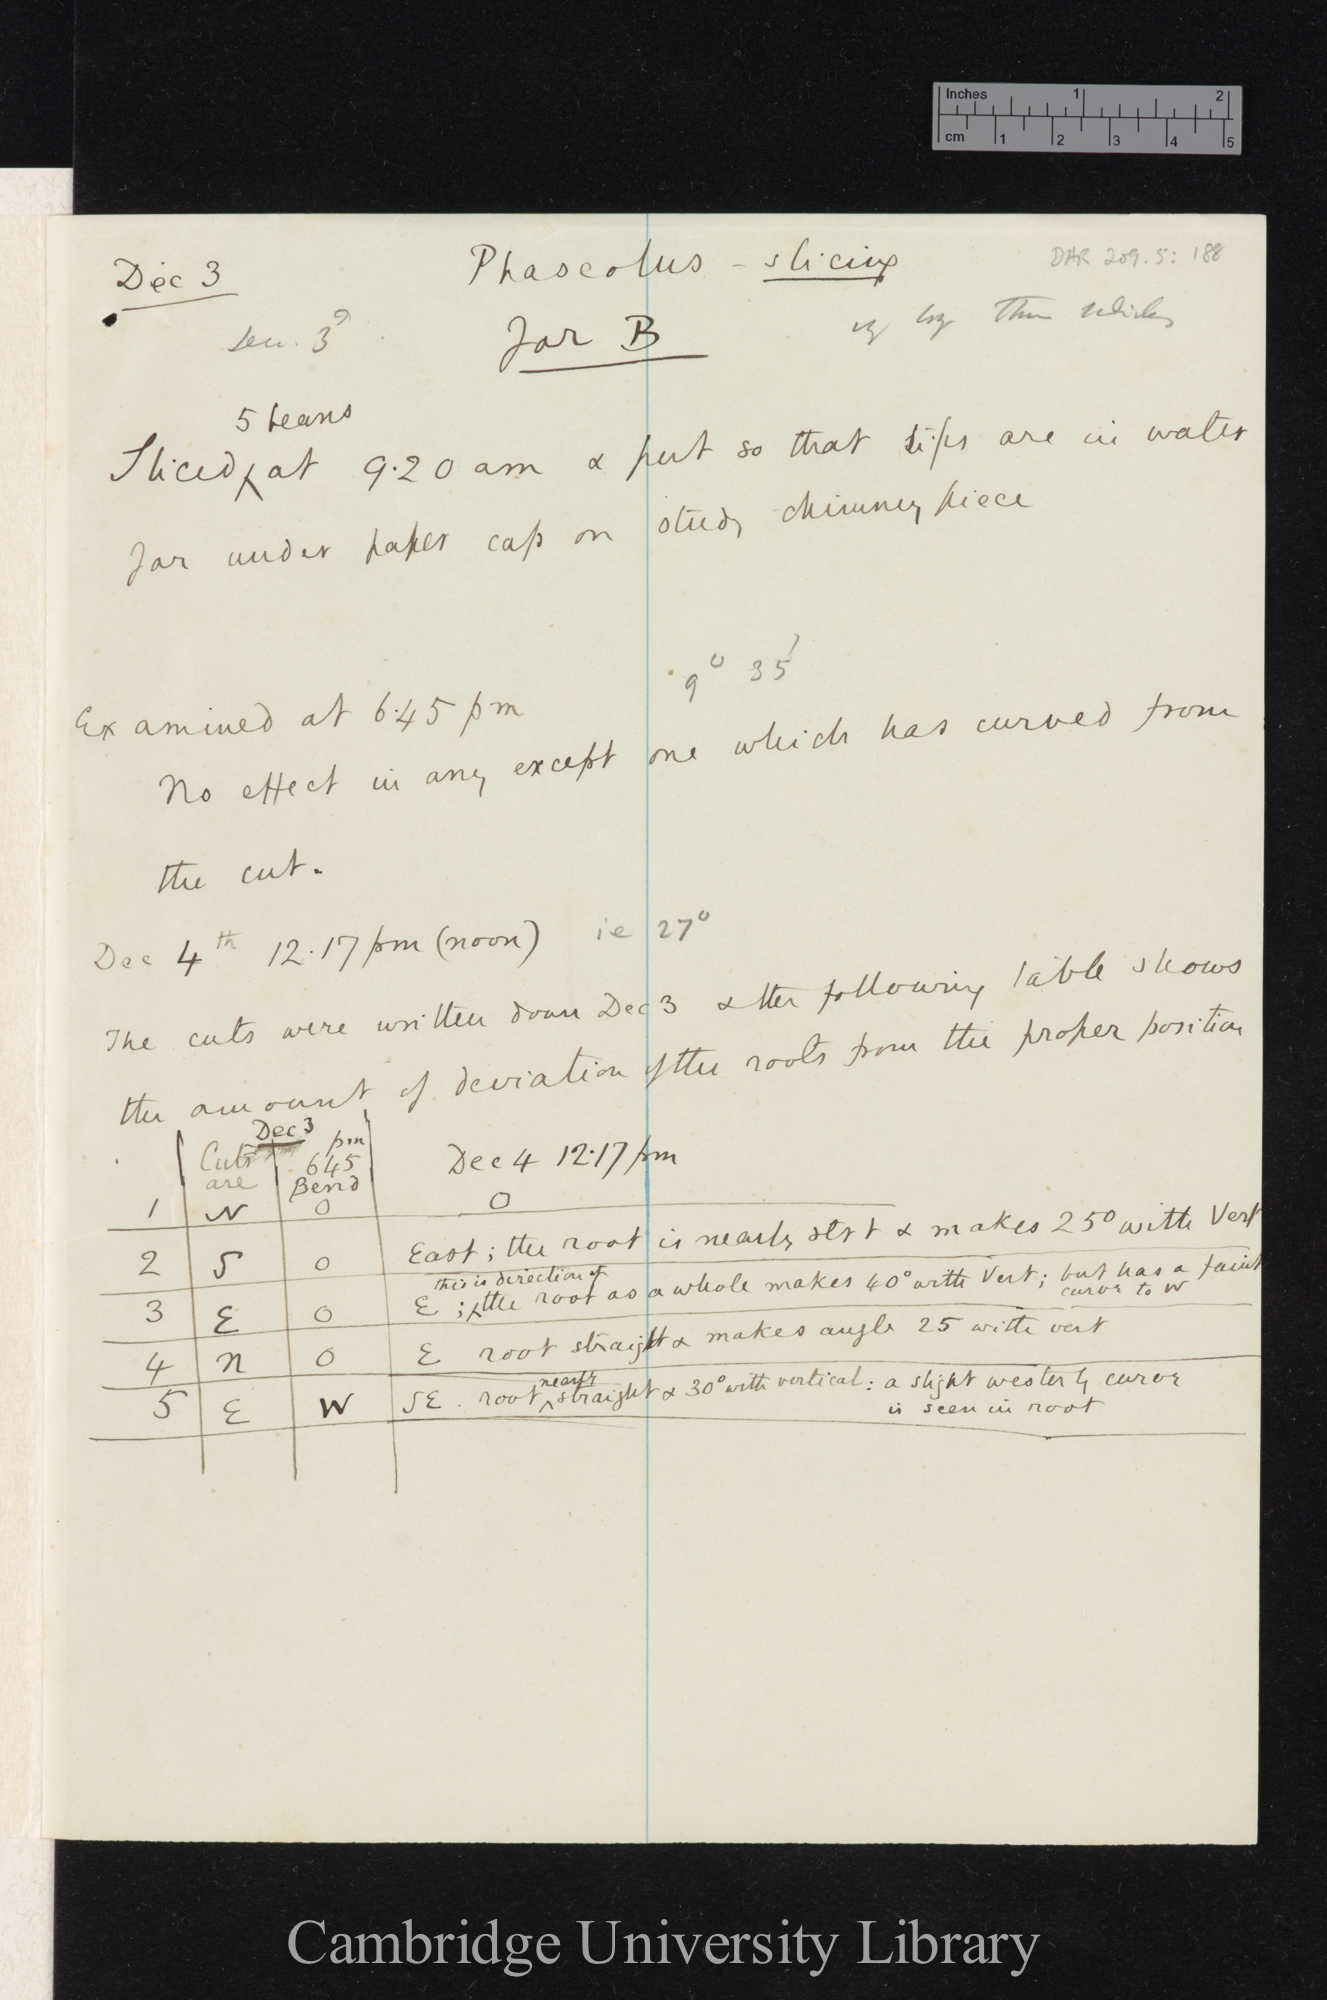 Inches 1 2
cm 1 2 3 4 5
DAR 209.5: 188
Dec 3 Phaseolus - slicing
Jar B
5 beans
Sliced at 9.20 am & put so that tips are in water
Jar under paper cap on study chimney piece
9° 35'
Examined at 6.45 pm
No effect in any except one which has curved from
the cut.
Dec 4th 12.17 pm (noon) ie 27°
The cuts were written down Dec 3 & the following table shows
the amount of deviation of the roots from the proper position
Dec 3
Cuts are pm 645 Bend Dec 4 12.17 pm
1 N 0 0
2 S 0 East; the root is nearly strt & makes 25° with Vert
this is direction of
3 E 0 E; the root as a whole makes 40° with Vert; but has a faint
curve to W
4 N 0 E root straight & makes angle 25 with vert
nearly
5 E W SE. root straight & 30° with vertical: a slight westerly curve
is seen in root
Cambridge University Library